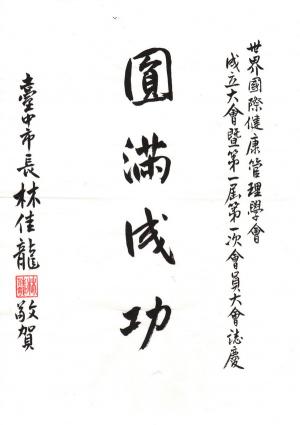 世界國際健康管理學會
成立大會暨第一屆第一次會員大會誌慶
圓滿成功
臺中市長林佳龍敬賀